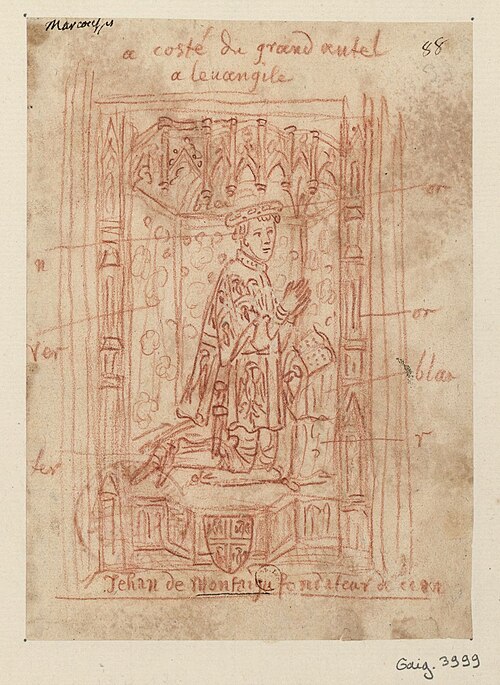 Marcoussis
88
a costé du grand autel
a levangile
or
n
or
ver
blan
r
ver
Jehan de Montaigu fondateur de cean
Gaig. 3999